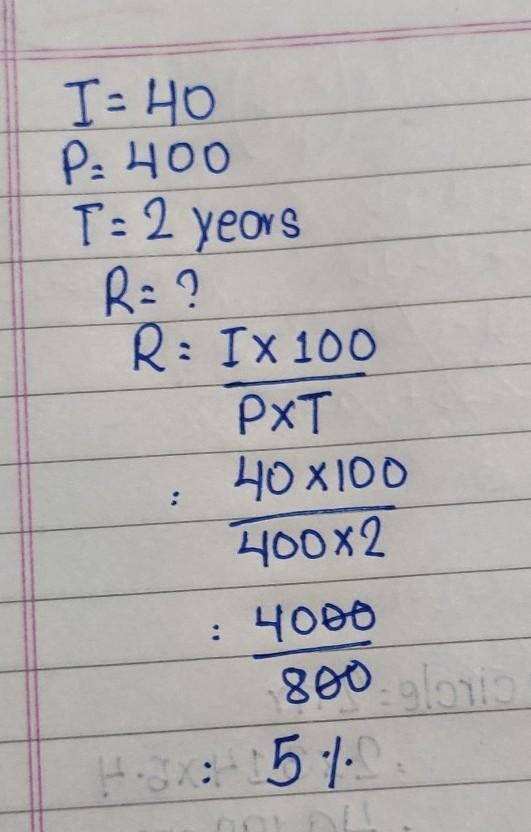 I = 40
P = 400
T = 2 years
R = ?
R = I × 100
P×T
= 40×100
400×2
= 4000
800
= 5%